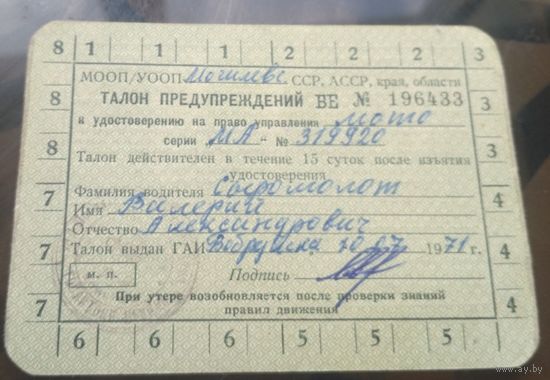 8 1 1 1 2 2 2 3
МООП/УООП Могилевс ССР, АССР, края, области
8 ТАЛОН ПРЕДУПРЕЖДЕНИЙ ВЕ № 196433 3
к удостоверению на право управления мото
8 серии МА - № 319920 3
Талон действителен в течение 15 суток после изъятия
удостоверения
7 Фамилия водителя Сыромолот 4
Имя Валерий
Отчество Александрович
7 Талон выдан ГАИ Бобруйска 10 07 1971 г. 4
м. п. Подпись
7 При утере возобновляется после проверки знаний 4
правил движения
6 6 6 5 5 5
www.ay.by